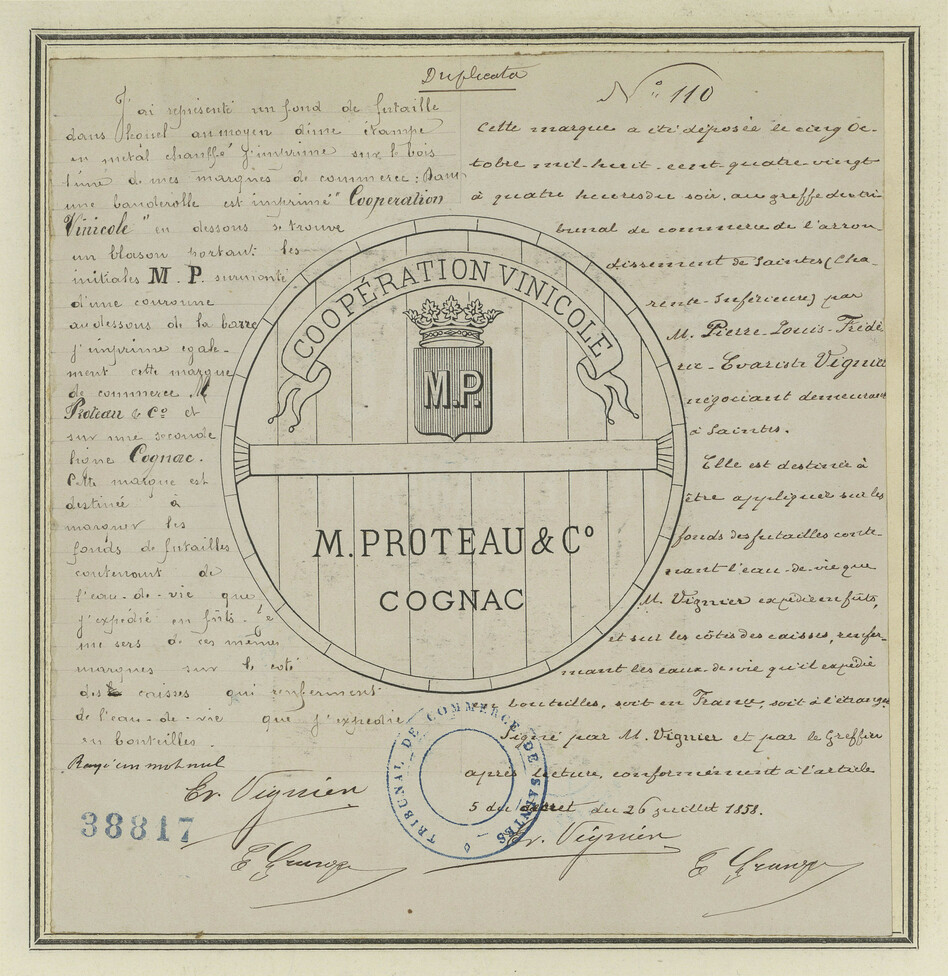 Duplicata
N° 110
J'ai représenté un fond de futaille
dans lequel au moyen d'une étampe
en métal chauffé j'imprime sur le bois
l'une de mes marques de commerce : Dans
une banderolle est imprimé " Cooperation
Vinicole " en dessous se trouve
un blason portant les
initiales M. P. surmonté
d'une couronne
au dessous de la barre
j'imprime égale-
ment cette marque
de commerce M
Proteau & Co et
sur une seconde
ligne Cognac.
Cette marque est
destinée à
marquer les
fonds de futailles
contenant de
l'eau-de-vie que
j'expédie en fûts.
me sers de ces mêmes
marques sur le coté
des caisses qui renferment
de l'eau-de-vie que j'expedie
en bouteilles.
Rayé un mot nul
Ev. Vignier
38817
E Grange
Cette marque a été déposée le cinq Oc-
tobre mil-huit-cent-quatre-vingt
à quatre heures du soir, au greffe du tri-
bunal de commerce de l'arron-
dissement de Saintes (Cha-
rente-Inférieure) par
M. Pierre-Louis-Frédé-
ric-Evariste Vignier
négociant demeurant
à Saintes.
Elle est destinée à
être appliquer sur les
fonds des futailles conte-
nant l'eau-de-vie que
M. Vignier expédie en fûts,
et sur les côtés des caisses, renfer-
mant les eaux-de-vie qu'il expédie
en bouteilles, soit en France, soit à l'étranger
Signé par M. Vignier et par le Greffier
après lecture, conformément à l'article
5 du décret du 26 juillet 1858.
Ev. Vignier
E Grange
COOPÉRATION VINICOLE
M.P.
M. PROTEAU & Co
COGNAC
TRIBUNAL DE COMMERCE DE SAINTES